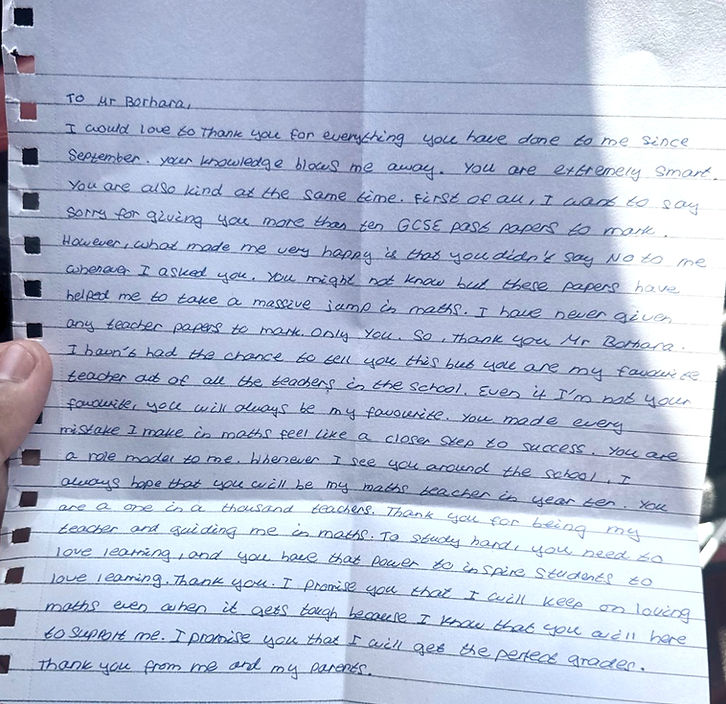 To Mr Borhara,
I would love to thank you for everything you have done to me since
September. your knowledge blows me away. You are extremely smart.
You are also kind at the same time. First of all, I want to say
sorry for giving you more than ten GCSE past papers to mark.
However, what made me very happy is that you didn't say NO to me
whenever I asked you. You might not know but these papers have
helped me to take a massive jump in maths. I have never given
any teacher papers to mark. Only you. So, thank you Mr Borhara.
I havn't had the chance to tell you this but you are my favourite
teacher out of all the teachers in the school. Even if I'm not your
favourite, you will always be my favourite. You made every
mistake I make in maths feel like a closer step to success. You are
a role model to me. Whenever I see you around the school, I
always hope that you will be my maths teacher in year ten. You
are a one in a thousand teachers. Thank you for being my
teacher and guiding me in maths. To study hard, you need to
love learning, and you have that power to inspire students to
love learning. Thank you. I promise you that I will keep on loving
maths even when it gets tough because I know that you will here
to support me. I promise you that I will get the perfect grades.
Thank you from me and my parents.